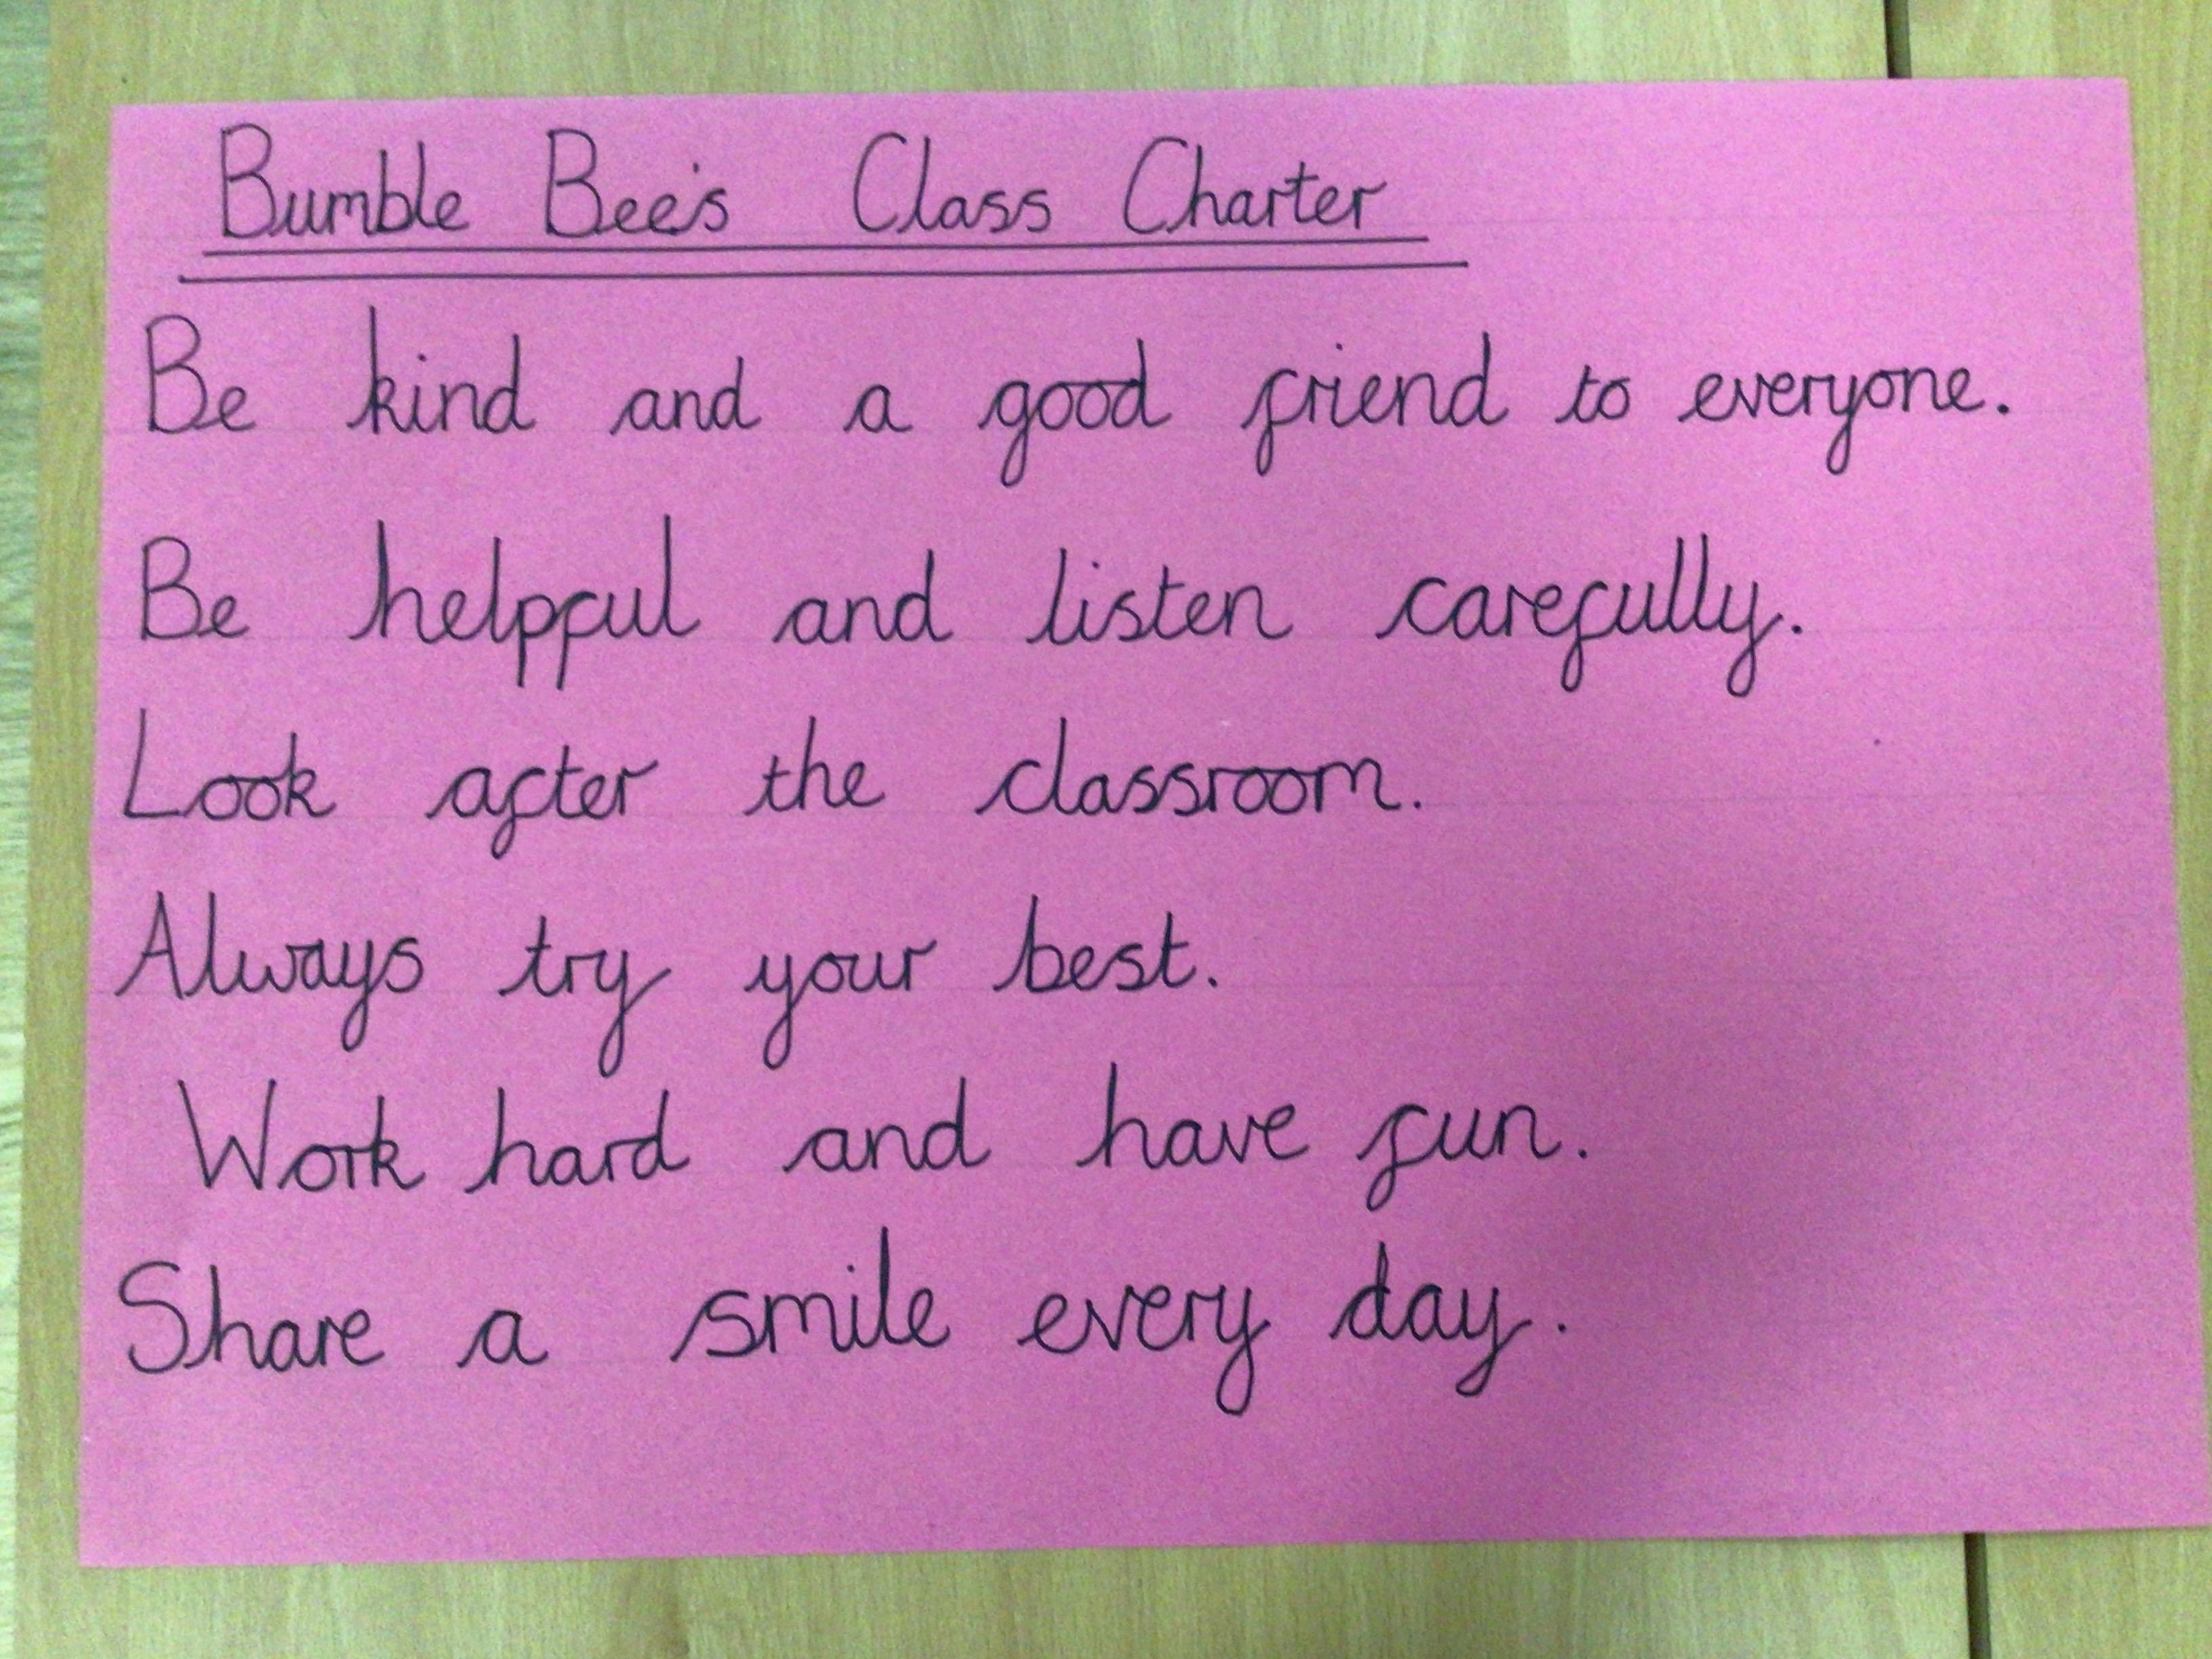 Bumble Bee's Class Charter
Be kind and a good friend to everyone.
Be helpful and listen carefully.
Look after the classroom.
Always try your best.
Work hard and have fun.
Share a smile every day.